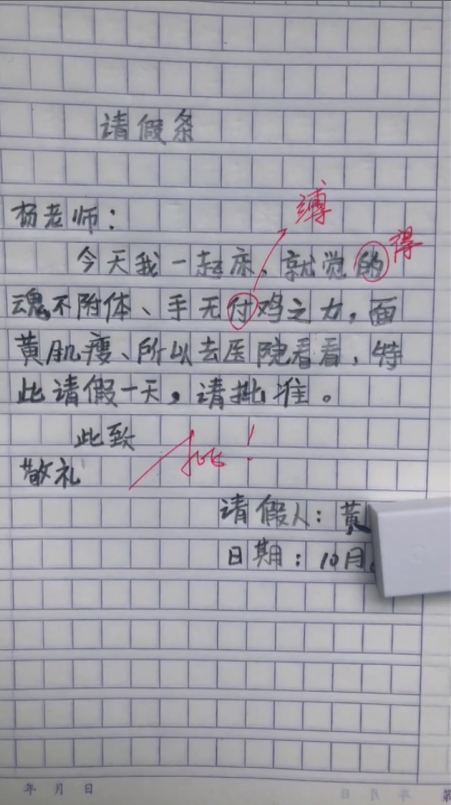 请假条
杨老师：
缚
今天我一起床、就觉的 得
魂不附体、手无付鸡之力，面
黄肌瘦、所以去医院看看，特
此请假一天，请批准。
此致
批！
敬礼
请假人：黄
日期：10月
年 月 日
年 月 日 第